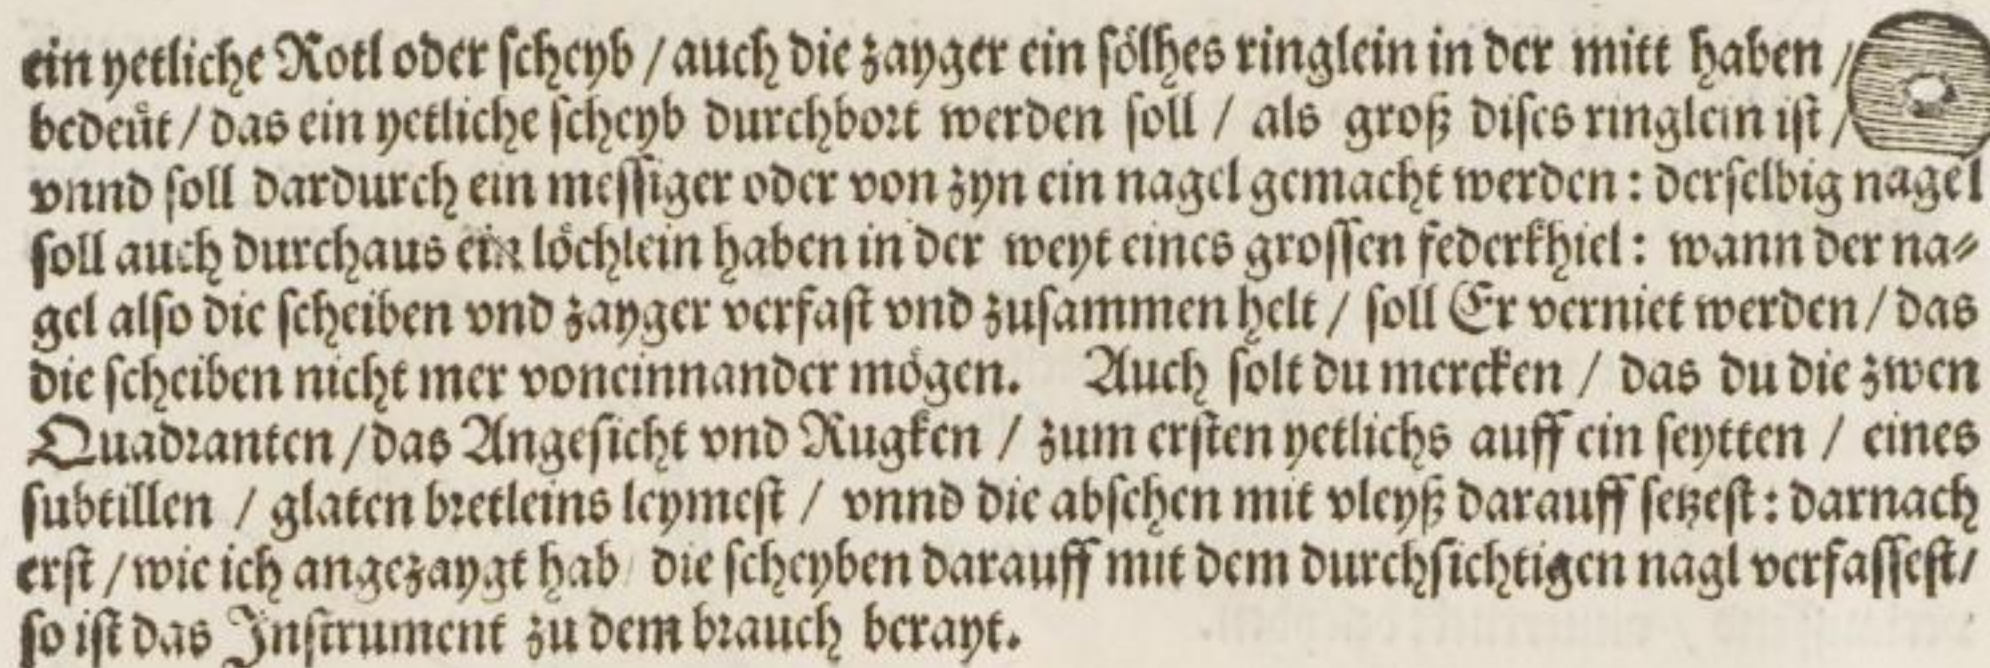 ein yetliche Rotl oder scheyb / auch die zayger ein sölhes ringlein in der mitt haben /
bedeüt / das ein yetliche scheyb durchbort werden soll / als groß dises ringlein ist /
vnnd soll dardurch ein messiger oder von zyn ein nagel gemacht werden : derselbig nagel
soll auch durchaus ein löchlein haben in der weyt eines grossen federkhiel : wann der na⸗
gel also die scheiben vnd zayger verfast vnd zusammen helt / soll Er verniet werden / das
die scheiben nicht mer voneinnander mögen. Auch solt du mercken / das du die zwen
Quadranten / das Angesicht vnd Rugken / zum ersten yetlichs auff ein seytten / eines
subtillen / glaten bretleins leymest / vnnd die absehen mit vleyß darauff setzest : darnach
erst / wie ich angezaygt hab / die scheyben darauff mit dem durchsichtigen nagl verfassest /
so ist das Instrument zu dem brauch berayt.